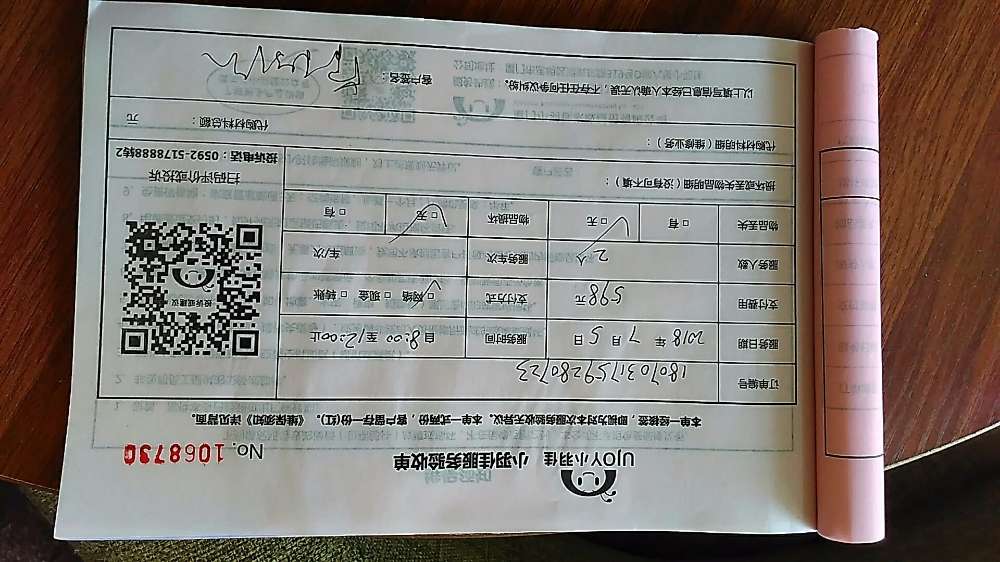 UJOY小羽佳 小羽佳服务验收单
No. 1068730
本单一经核签,即视为对本次服务验收无异议。本单一式两份,客户留存一份(红)《维保须知》详见背面。
订单编号 1807031759280723
服务日期 2018 年 7 月 5 日 服务时间 自 8:00 至 12:00止
支付费用 598元 支付方式 □网络 □现金 □转账
服务人数 2人 服务车次 车/次
物品丢失 □有 □无 物品损坏 □无 □有
损坏或丢失物品明细(没有可不填):
代购材料明细(维修业务): 代购材料总额: 元
以上填写信息已经本人确认无误,不存在任何争议纠纷。 客户签名:
投诉或建议
扫码评价或投诉
投诉电话:0592-5178888转2